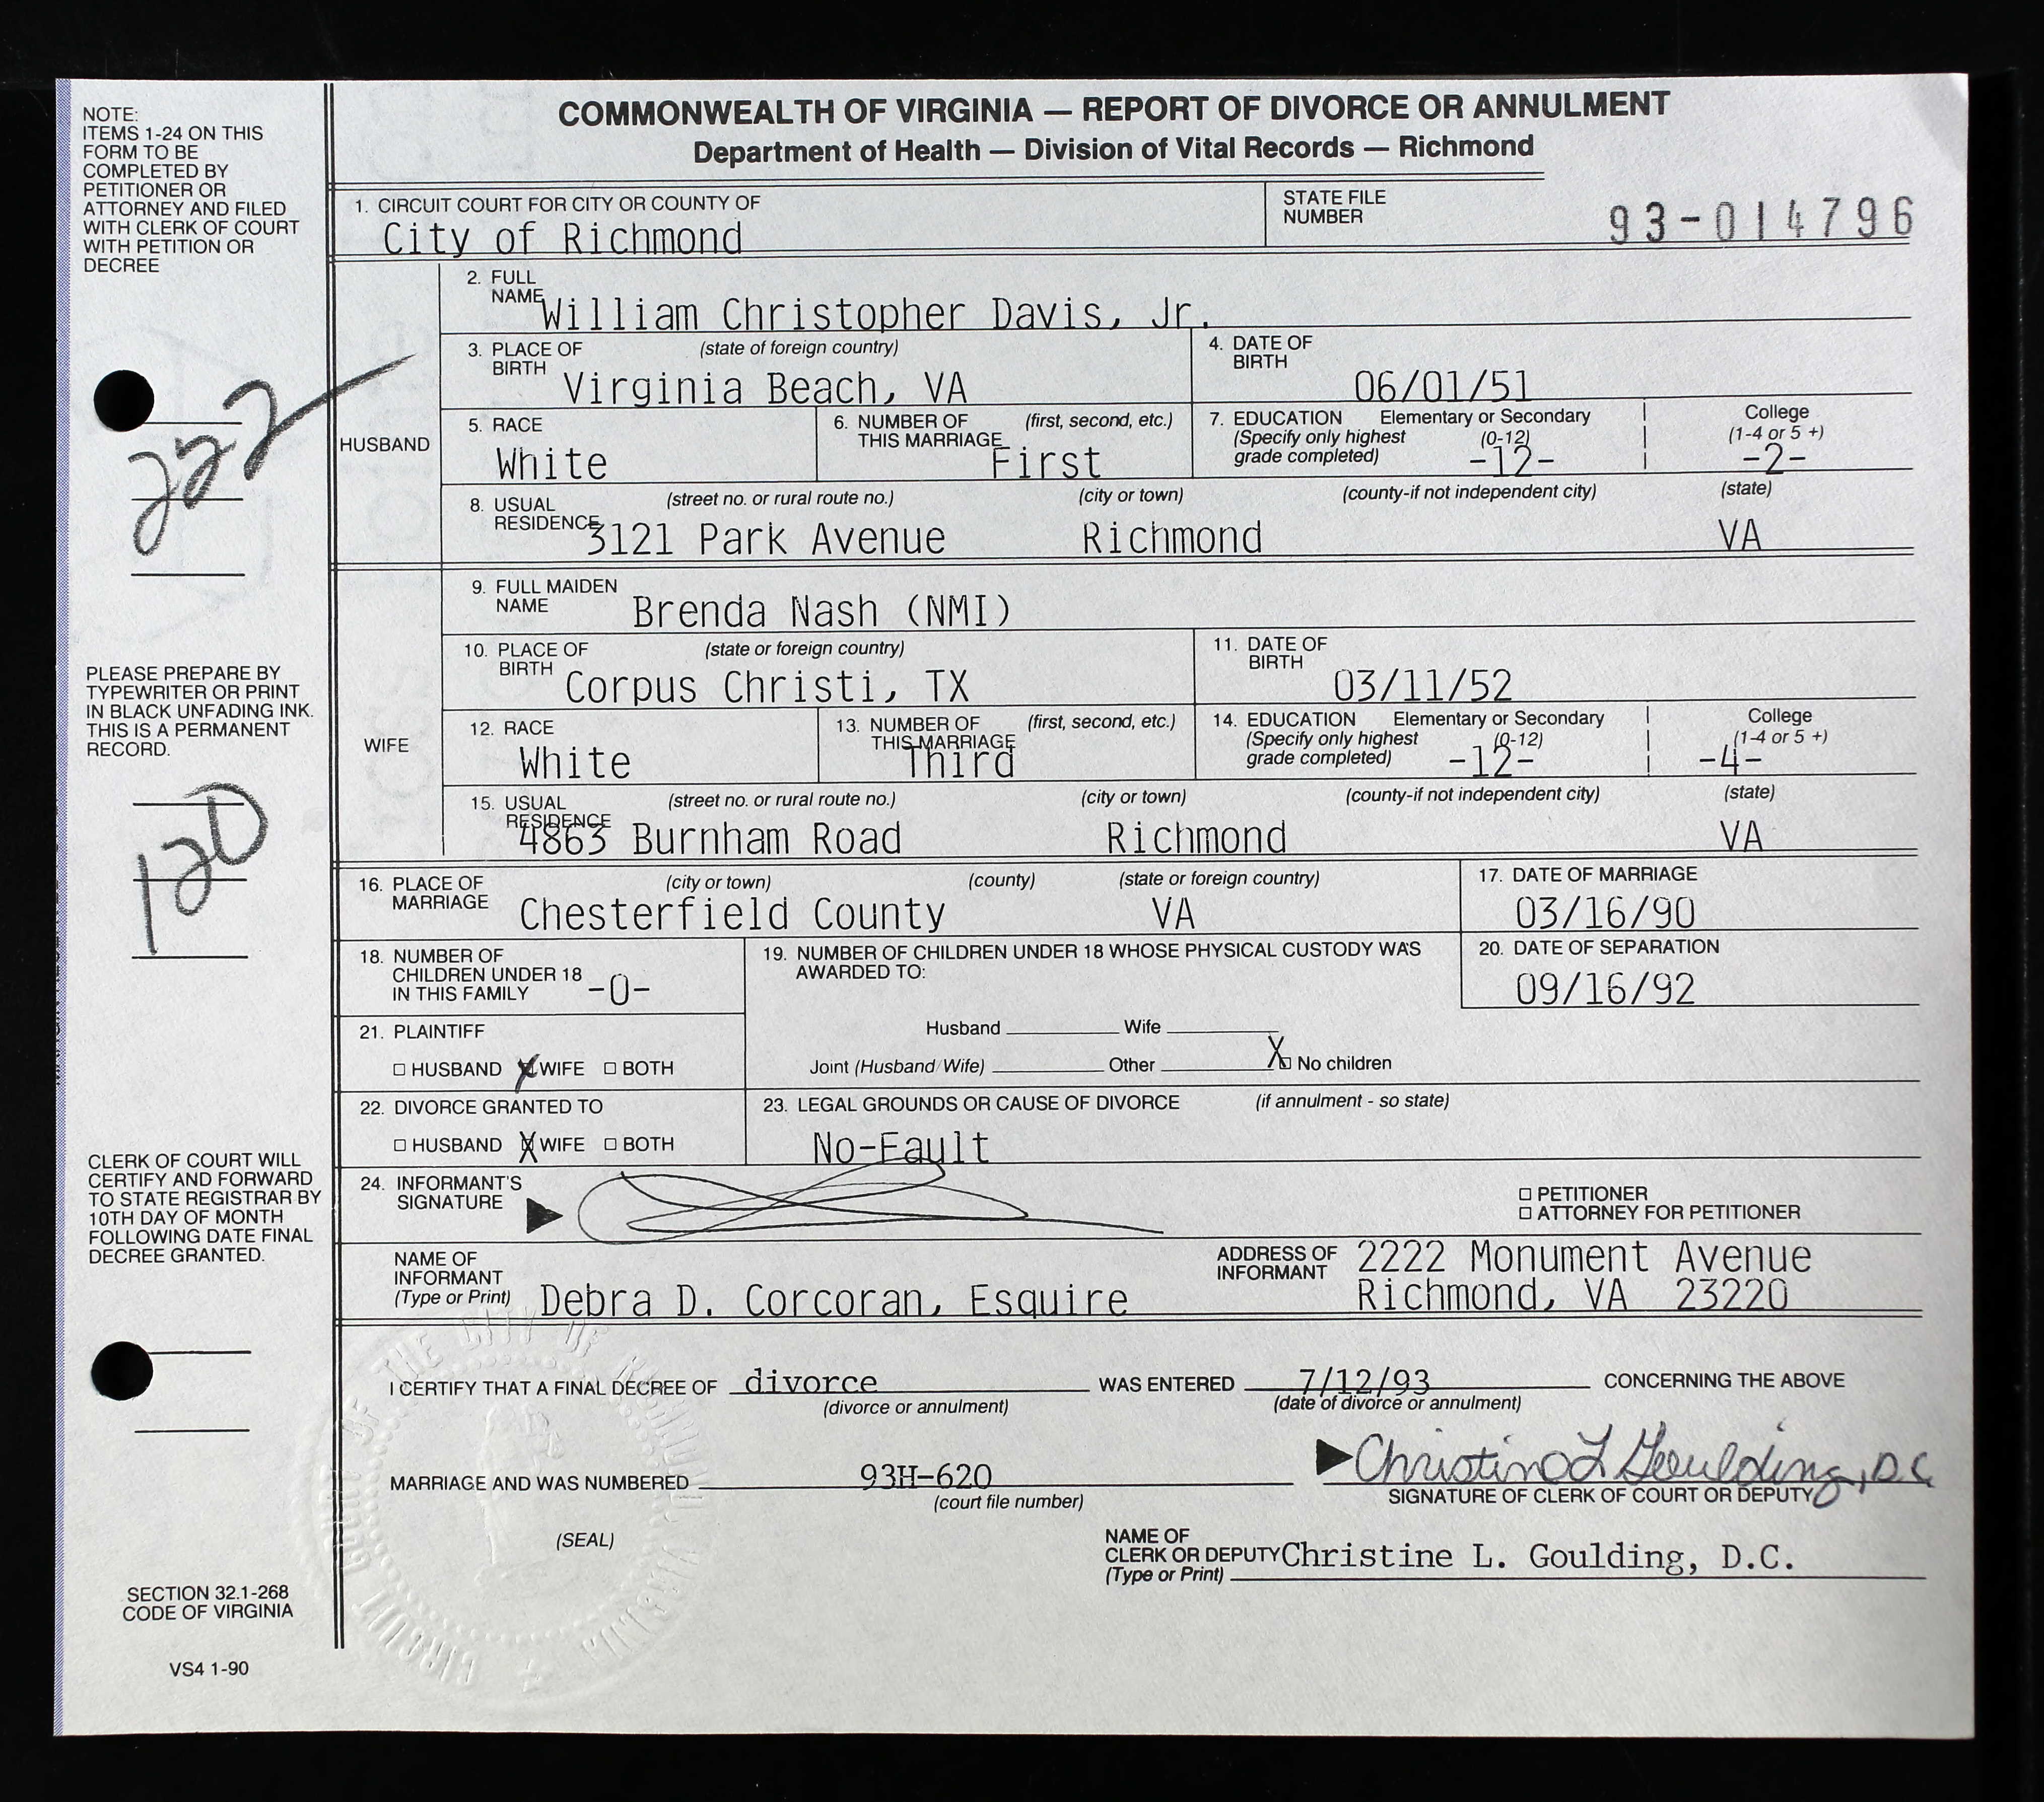 COMMONWEALTH OF VIRGINIA — REPORT OF DIVORCE OR ANNULMENT
Department of Health — Division of Vital Records — Richmond
NOTE:
ITEMS 1-24 ON THIS
FORM TO BE
COMPLETED BY
PETITIONER OR
ATTORNEY AND FILED
WITH CLERK OF COURT
WITH PETITION OR
DECREE
222
PLEASE PREPARE BY
TYPEWRITER OR PRINT
IN BLACK UNFADING INK.
THIS IS A PERMANENT
RECORD.
120
CLERK OF COURT WILL
CERTIFY AND FORWARD
TO STATE REGISTRAR BY
10TH DAY OF MONTH
FOLLOWING DATE FINAL
DECREE GRANTED.
SECTION 32.1-268
CODE OF VIRGINIA
VS4 1-90
1. CIRCUIT COURT FOR CITY OR COUNTY OF
City of Richmond
STATE FILE
NUMBER
93-014796
HUSBAND
2. FULL
NAME William Christopher Davis, Jr.
3. PLACE OF (state of foreign country)
BIRTH Virginia Beach, VA
4. DATE OF
BIRTH 06/01/51
5. RACE
White
6. NUMBER OF (first, second, etc.)
THIS MARRIAGE First
7. EDUCATION Elementary or Secondary College
(Specify only highest (0-12) (1-4 or 5 +)
grade completed) -12- -2-
8. USUAL (street no. or rural route no.) (city or town) (county-if not independent city) (state)
RESIDENCE 3121 Park Avenue Richmond VA
WIFE
9. FULL MAIDEN
NAME Brenda Nash (NMI)
10. PLACE OF (state or foreign country)
BIRTH Corpus Christi, TX
11. DATE OF
BIRTH 03/11/52
12. RACE
White
13. NUMBER OF (first, second, etc.)
THIS MARRIAGE Third
14. EDUCATION Elementary or Secondary College
(Specify only highest (0-12) (1-4 or 5 +)
grade completed) -12- -4-
15. USUAL (street no. or rural route no.) (city or town) (county-if not independent city) (state)
RESIDENCE 4863 Burnham Road Richmond VA
16. PLACE OF (city or town) (county) (state or foreign country)
MARRIAGE Chesterfield County VA
17. DATE OF MARRIAGE
03/16/90
18. NUMBER OF
CHILDREN UNDER 18
IN THIS FAMILY -0-
19. NUMBER OF CHILDREN UNDER 18 WHOSE PHYSICAL CUSTODY WAS
AWARDED TO:
Husband Wife
Joint (Husband/Wife) Other X No children
20. DATE OF SEPARATION
09/16/92
21. PLAINTIFF
HUSBAND X WIFE BOTH
22. DIVORCE GRANTED TO
HUSBAND X WIFE BOTH
23. LEGAL GROUNDS OR CAUSE OF DIVORCE (if annulment - so state)
No-Fault
24. INFORMANT'S
SIGNATURE
PETITIONER
ATTORNEY FOR PETITIONER
NAME OF
INFORMANT
(Type or Print) Debra D. Corcoran, Esquire
ADDRESS OF
INFORMANT
2222 Monument Avenue
Richmond, VA 23220
I CERTIFY THAT A FINAL DECREE OF divorce WAS ENTERED 7/12/93 CONCERNING THE ABOVE
(divorce or annulment) (date of divorce or annulment)
MARRIAGE AND WAS NUMBERED 93H-620
(court file number)
Christine L Goulding, D.C.
SIGNATURE OF CLERK OF COURT OR DEPUTY
(SEAL)
NAME OF
CLERK OR DEPUTY Christine L. Goulding, D.C.
(Type or Print)